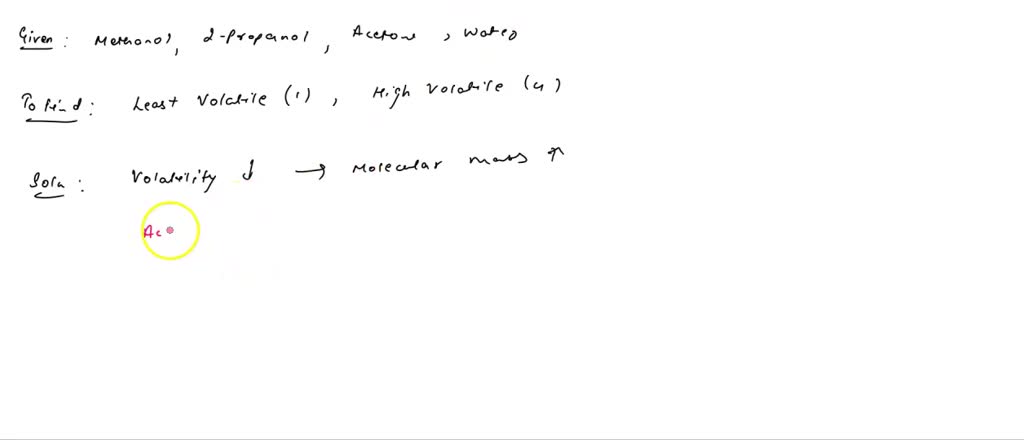 Given : Methanol, 2-propanol, Acetone, Water
To find : Least Volatile (1), High Volatile (4)
Soln : Volatility ↓ → Molecular mass ↑
Ac